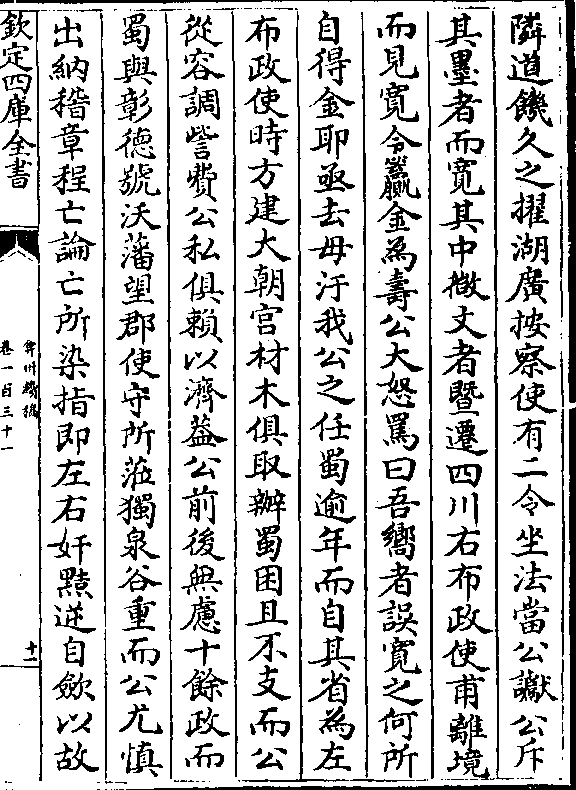 隣道饑久之擢湖廣按察使有二令坐法當公讞公斥
其墨者而寛其中微文者暨遷四川右布政使甫離境
而見寛令羸金為壽公大怒罵曰吾嚮者誤寛之何所
自得金耶亟去毋汙我公之任蜀逾年而自其省為左
布政使時方建大朝宫材木俱取辦蜀困且不支而公
從容調訾費公私俱賴以濟葢公前後無慮十餘政而
蜀與彰德號沃藩望郡使守所蒞獨泉谷重而公尤慎
出納稽章程亡論亡所染指即左右奸黠逆自歛以故
欽定四庫全書
弇州續稿
卷一百三十一
十二